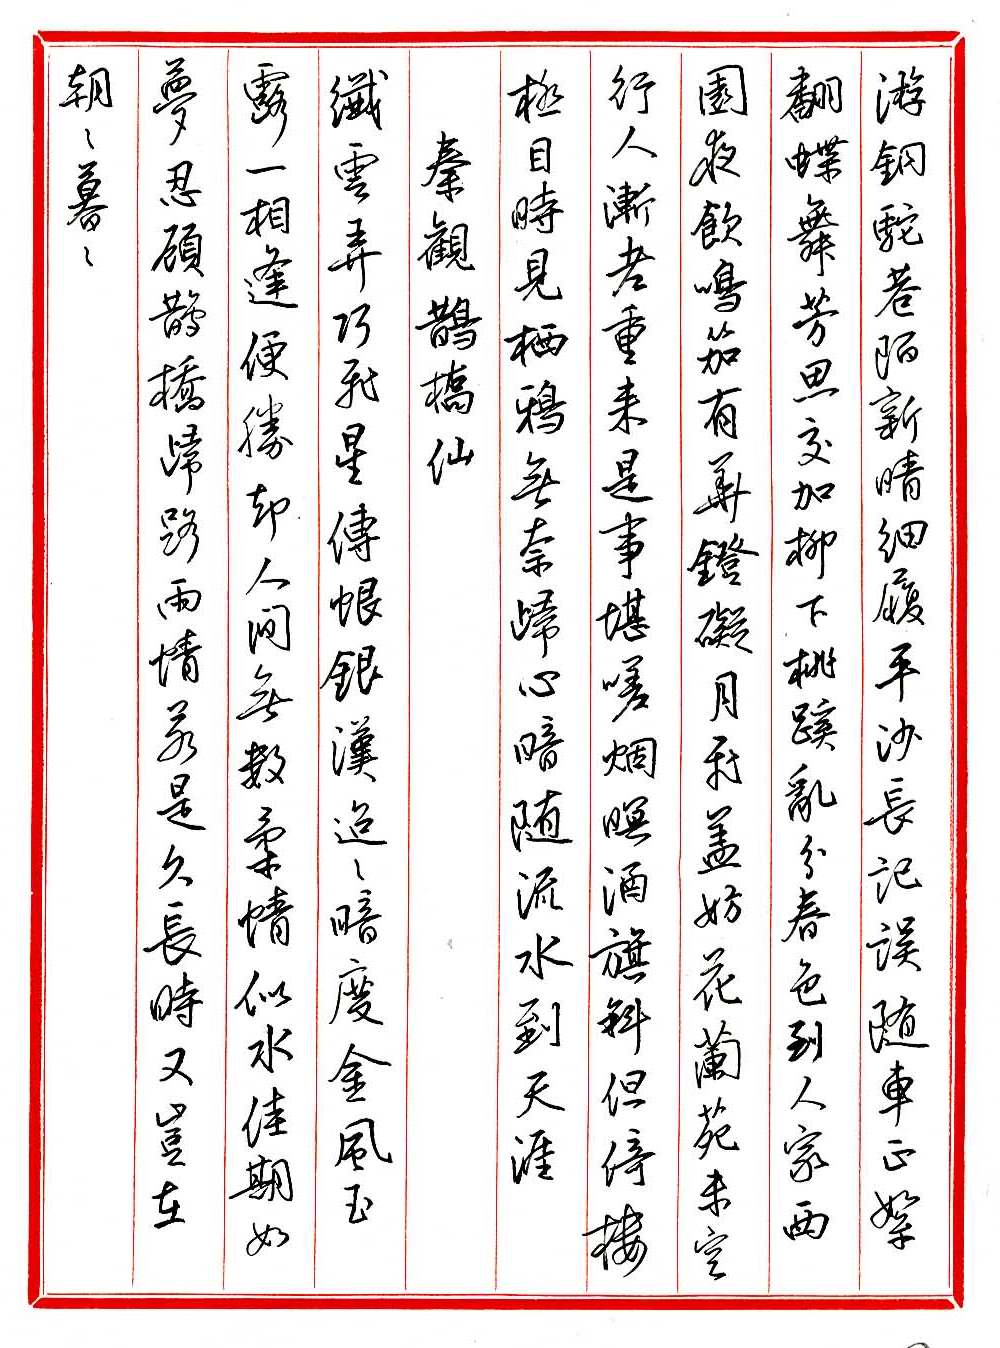 游銅駝巷陌新晴細履平沙長記誤随車正絮
翻蝶舞芳思交加柳下桃蹊亂分春色到人家西
園夜飲鳴笳有華鐙礙月飛蓋妨花蘭苑未空
行人漸老重来是事堪嗟烟暝酒旗斜但倚樓
極目時見栖鴉無奈歸心暗随流水到天涯
秦觀鵲橋仙
纖雲弄巧飛星傳恨銀漢迢〻暗度金風玉
露一相逢便勝却人间無數柔情似水佳期如
夢忍顧鵲橋歸路两情若是久長時又豈在
朝〻暮〻